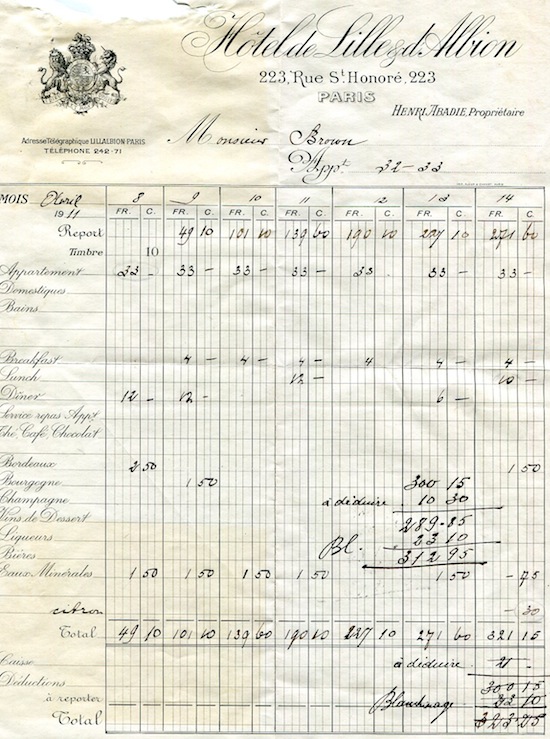 Hôtel de Lille & d'Albion
223, Rue St Honoré, 223
PARIS
HENRI ABADIE, Propriétaire
Adresse Télégraphique LILLALBION-PARIS
TÉLÉPHONE 242-71
Monsieur Brown
Appt 32-33
MOIS Avril 8 9 10 11 12 13 14
1911 FR. C. FR. C. FR. C. FR. C. FR. C. FR. C. FR. C.
Report 49 10 101 10 139 60 190 10 227 10 271 60
Timbre 10
Appartement 33 - 33 - 33 - 33 - 33 33 - 33 -
Domestiques
Bains
Breakfast 4 - 4 - 4 - 4 4 - 4 -
Lunch 12 - 10 -
Dîner 12 - 12 - 6 -
Service repas Appt
Thé, Café, Chocolat
Bordeaux 2 50 1 50
Bourgogne 1 50 300 15
Champagne à déduire 10 30
Vins de Dessert 289.85
Liqueurs 23 10
Bières Bl. 312 95
Eaux Minérales 1 50 1 50 1 50 1 50 1 50 - 75
citron - 30
Total 49 10 101 10 139 60 190 10 227 10 271 60 321 15
Caisse à déduire 21 -
Déductions 300 15
à reporter Blanchissage 10
Total 323.25